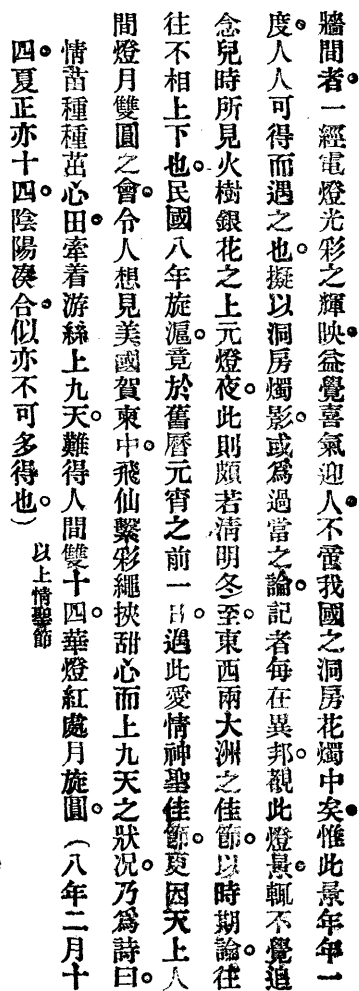 牆間者。一經電燈光彩之輝映。益覺喜氣迎人。不啻我國之洞房花燭中矣。惟此景年年一
度。人人可得而遇之也。擬以洞房燭影。或爲過當之論。記者每在異邦。觀此燈景。輒不覺追
念兒時所見火樹銀花之上元燈夜。此則頗若清明冬至。東西兩大洲之佳節。以時期論。往
往不相上下也。民國八年旋滬。竟於舊曆元宵之前一日。遇此愛情神聖佳節。更因天上人
間燈月雙圓之會。令人想見美國賀柬中。飛仙繫彩繩挾甜心而上九天之狀况。乃爲詩曰。
情苗種種茁心田。牽着游絲上九天。難得人間雙十四。華燈紅處月旋圓。(八年二月十
四。夏正亦十四。陰陽湊合。似亦不可多得也。)
以上情聖節